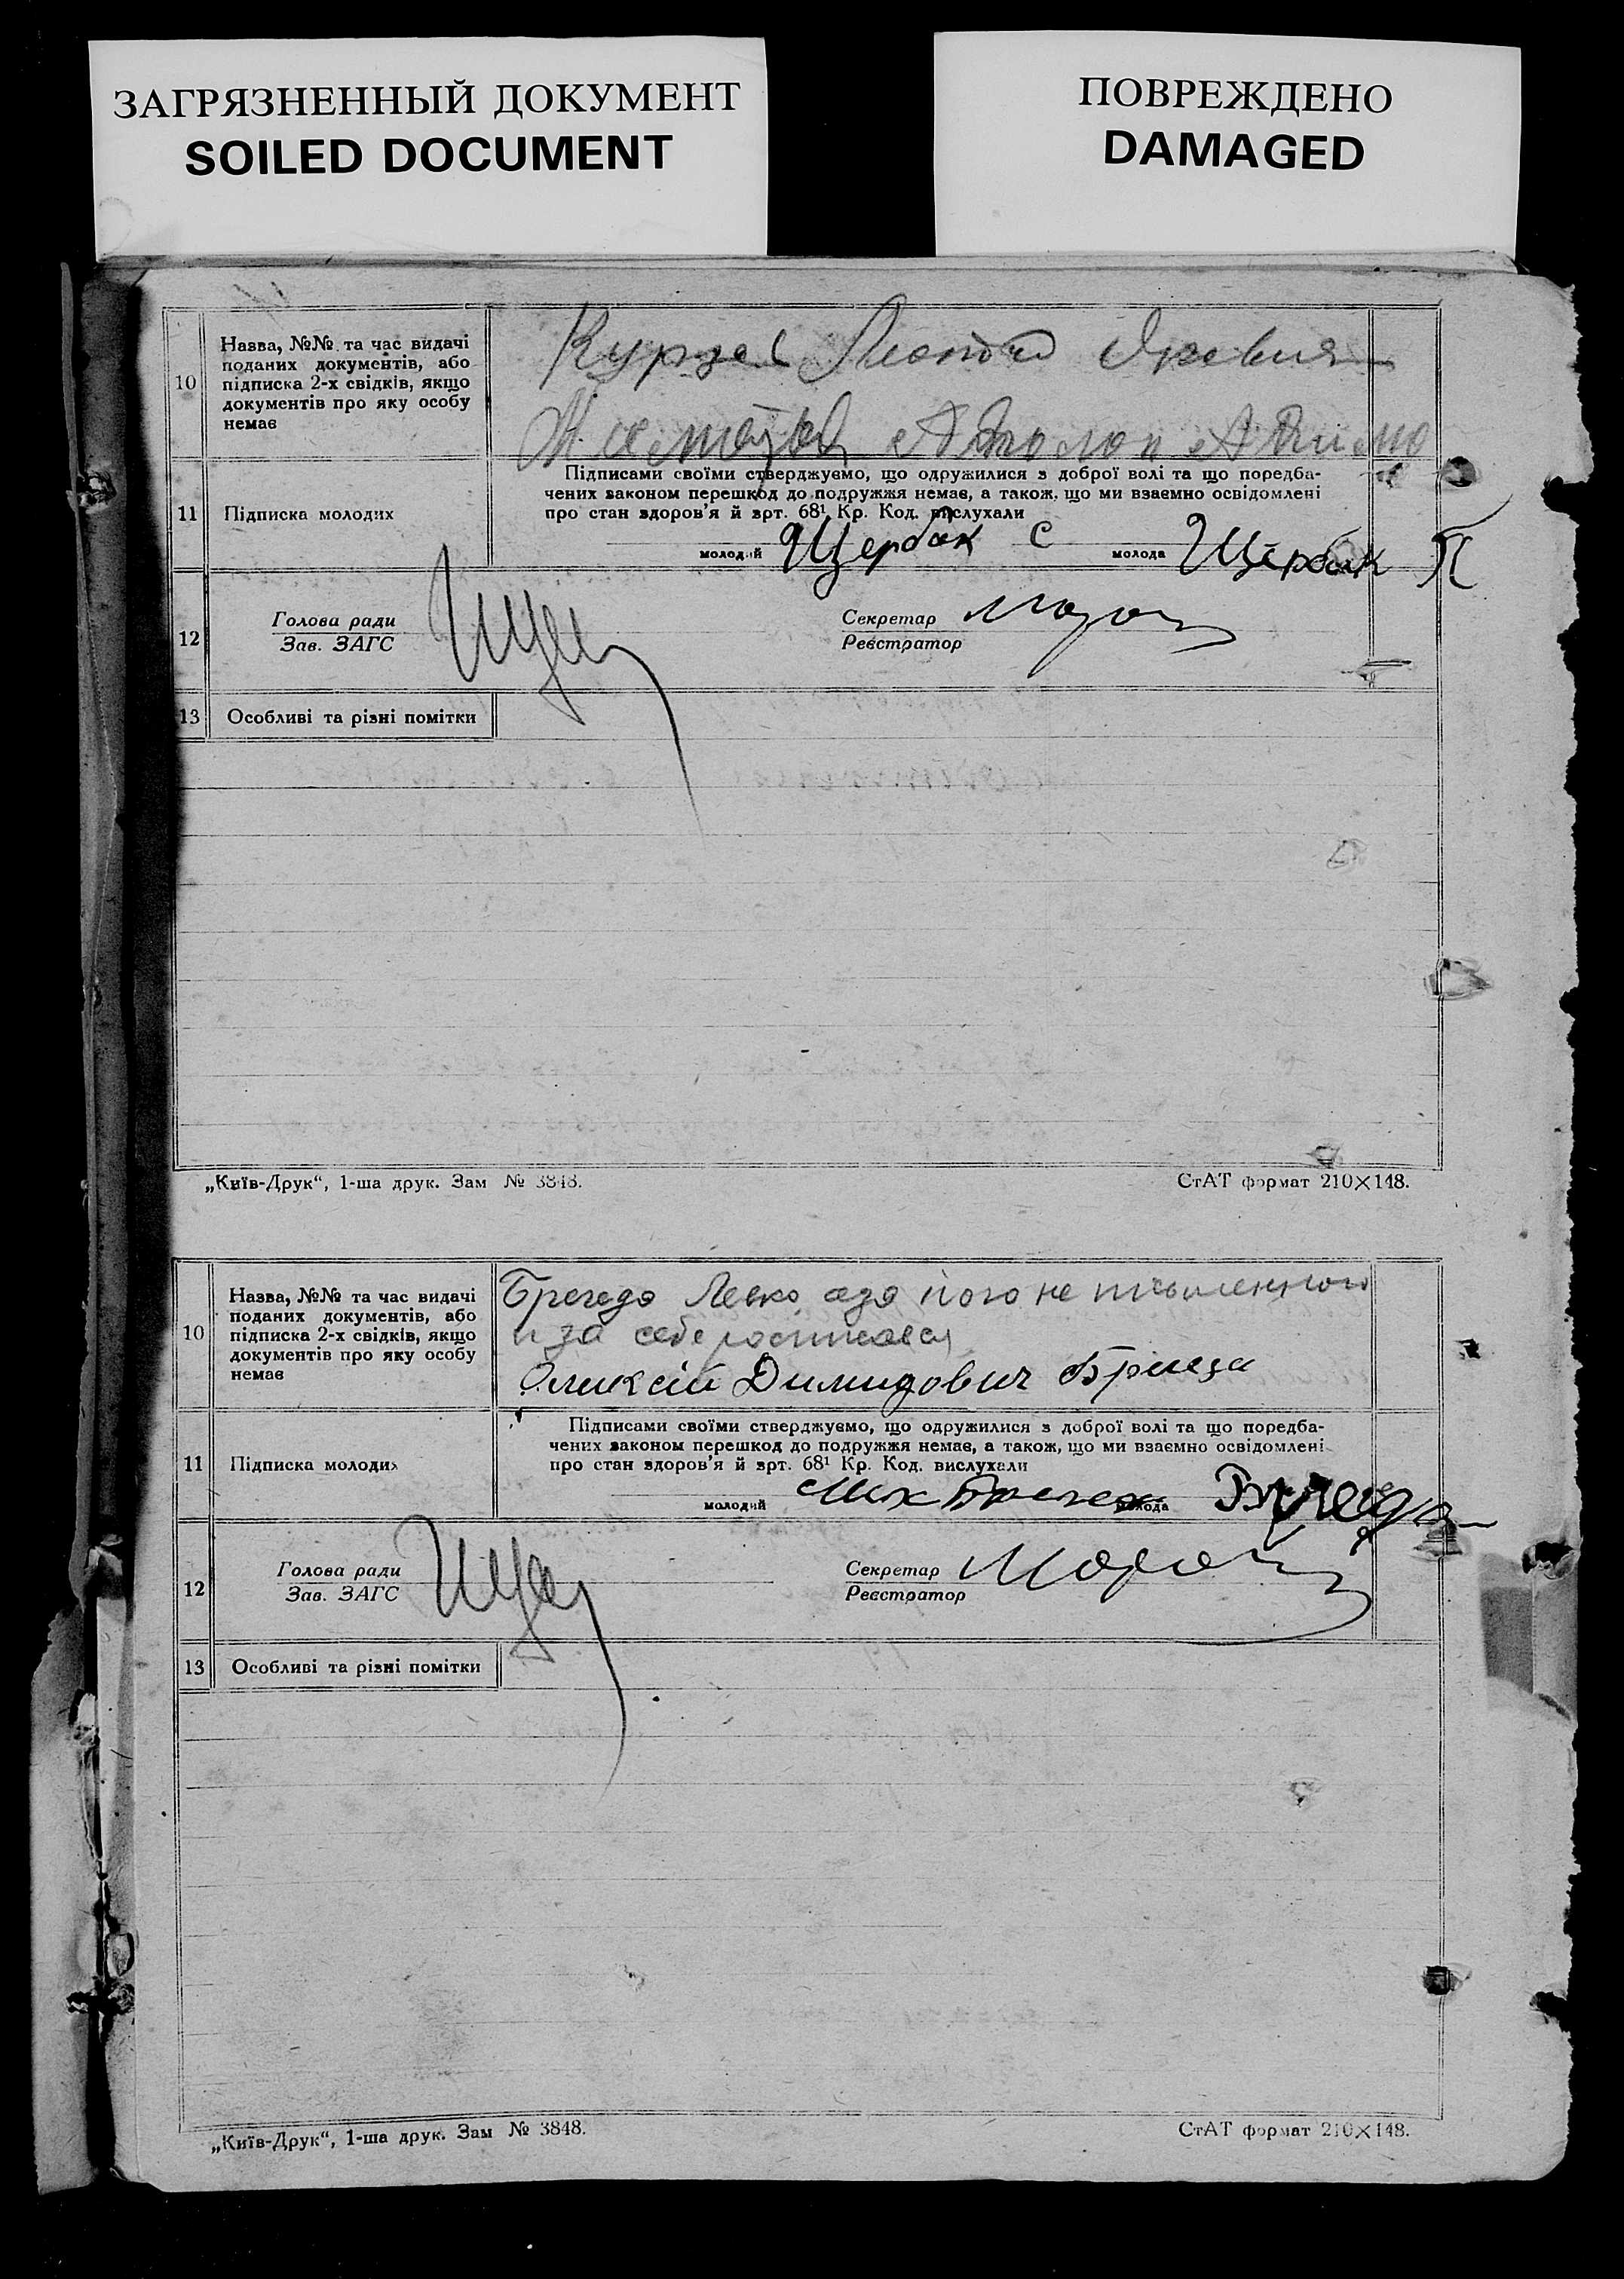 ЗАГРЯЗНЕННЫЙ ДОКУМЕНТ
SOILED DOCUMENT
ПОВРЕЖДЕНО
DAMAGED
10
Назва, №№ та час видачі
поданих документів, або
підписка 2-х свідків, якщо
документів про яку особу
немає
11
Підписка молодих
Підписами своїми стверджуємо, що одружилися з доброї волі та що поредба-
чених законом перешкод до подружжя немає, а також, що ми взаємно освідомлені
про стан здоров'я й арт. 68¹ Кр. Код. вислухали
молодий Щербак С молода Щербак П
12
Голова ради
Зав. ЗАГС
Секретар
Реєстратор
13
Особливі та різні помітки
„Київ-Друк“, 1-ша друк. Зам № 3848.
СтАТ формат 210×148.
10
Назва, №№ та час видачі
поданих документів, або
підписка 2-х свідків, якщо
документів про яку особу
немає
Левко його не письменного
за себе
Оликсій Димидович
11
Підписка молодих
Підписами своїми стверджуємо, що одружилися з доброї волі та що поредба-
чених законом перешкод до подружжя немає, а також, що ми взаємно освідомлені
про стан здоров'я й арт. 68¹ Кр. Код. вислухали
молодий молода
12
Голова ради
Зав. ЗАГС
Секретар
Реєстратор
13
Особливі та різні помітки
„Київ-Друк“, 1-ша друк. Зам № 3848.
СтАТ формат 210×148.